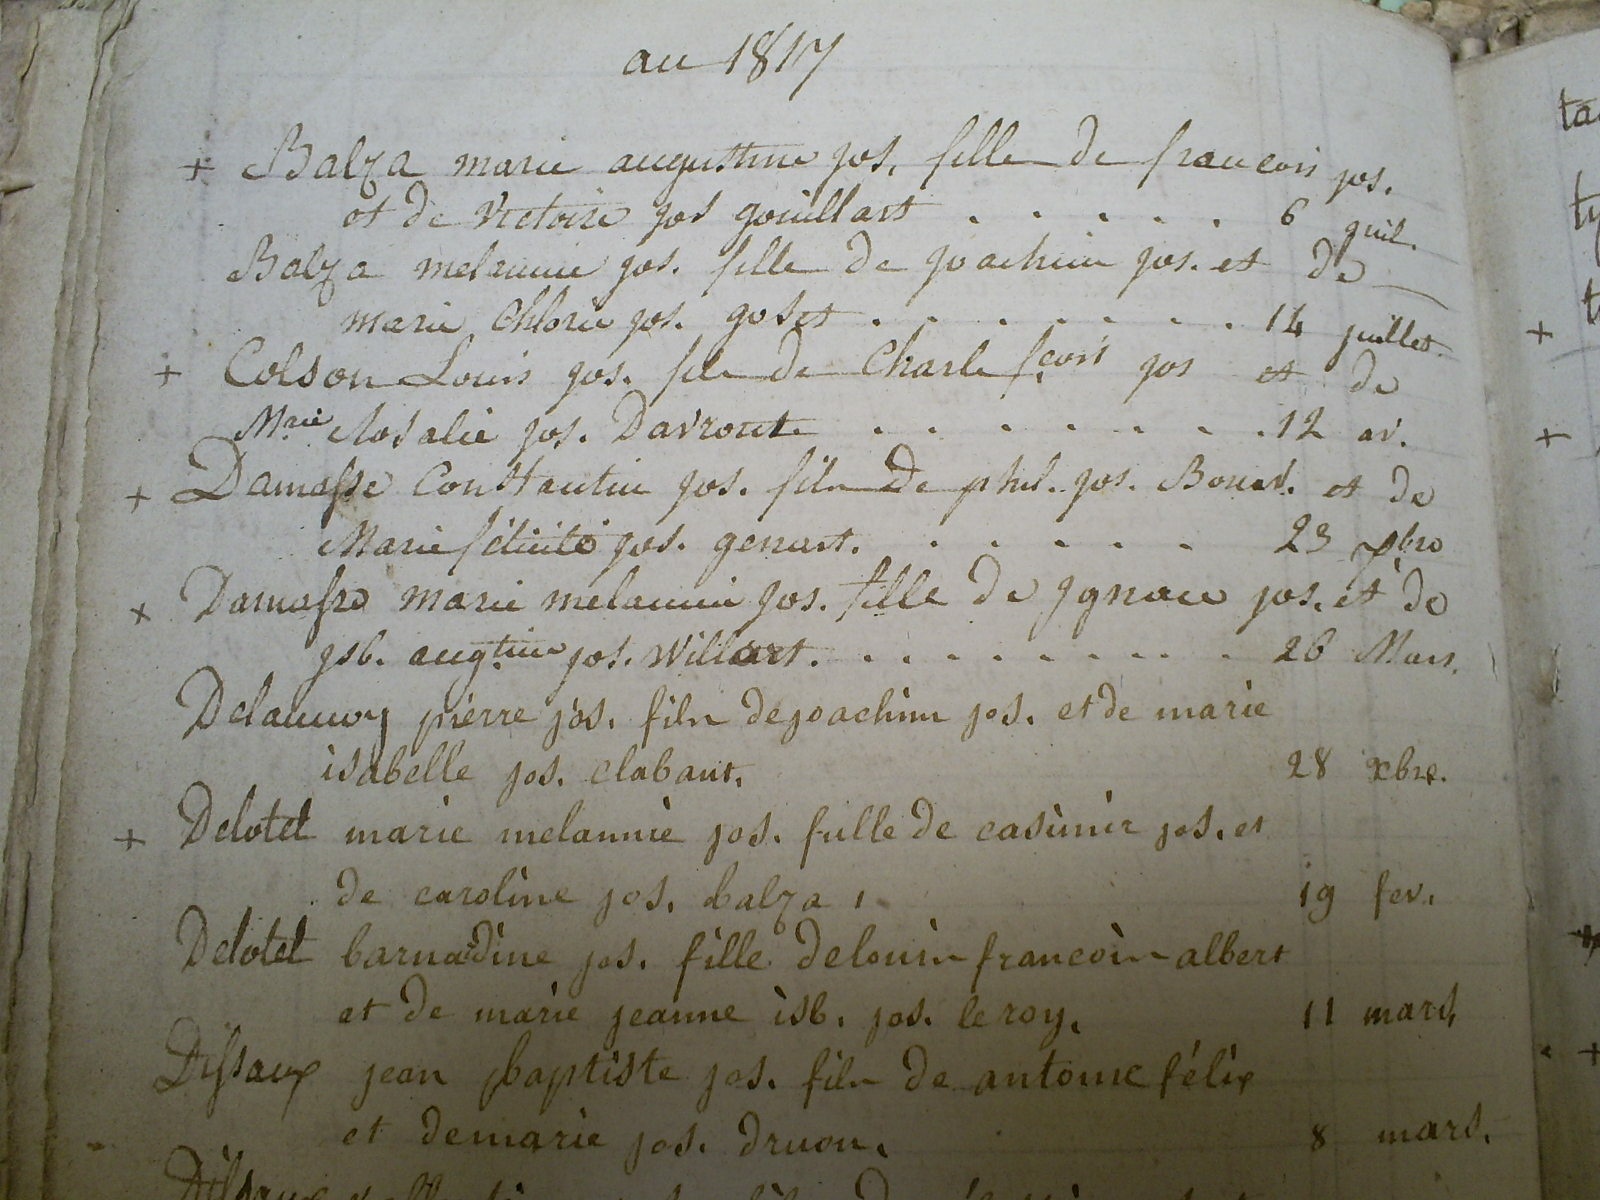 au 1817
+ Balza marie augustine jos. fille de francois jos.
et de Victoire jos gouillart . . . . . . 6 juil.
Balza melannie jos. fille de joachim jos. et de
marie Chlorie jos. goset . . . . . . . . 14 juillet
+ Colson Louis jos. fils de Charle f.cois jos et de
M.rie Rosalie jos. Davroult . . . . . . . 12 av.
+ Damasse Constantin jos. fils de phil. jos. et de
Marie félicité jos. genart. . . . . . . 23
+ Damasse marie melannie jos. fille de jgnace jos. et de
jsb. aug.tine jos. Willart. . . . . . . . . 26 Mars.
Delannoy pierre jos. fils de joachim jos. et de marie
isabelle jos. clabaut. 28 xbre.
+ Delotel marie melannie jos. fille de casimir jos. et
de caroline jos. balza, 19 fev.
Delotel barnadine jos. fille de louis francois albert
et de marie jeanne isb. jos. le roy. 11 mars,
Dissaux jean baptiste jos. fils de antoine félix
et de marie jos. druon. 8 mars.
ta
+
+
+